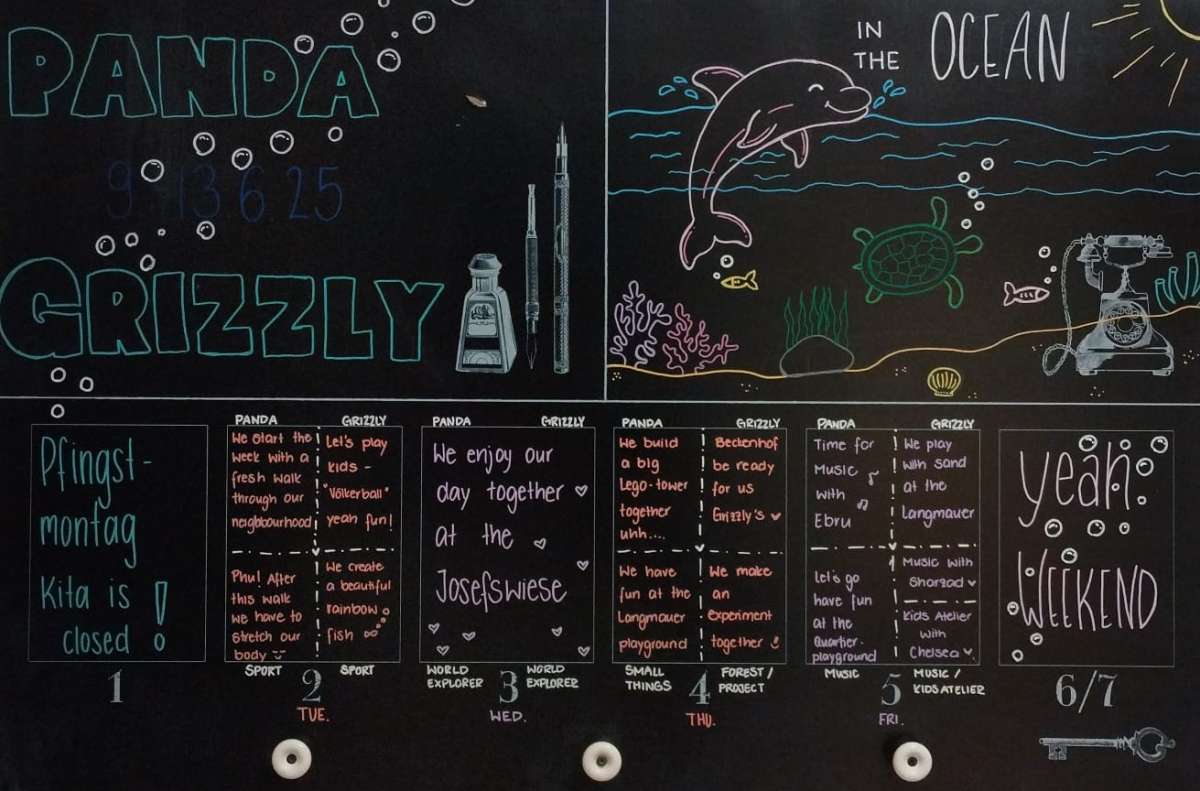 PANDA
9 - 13.6.25
GRIZZLY
IN
THE
OCEAN
Pfingst-
montag
Kita is
closed !
1
PANDA
GRIZZLY
We start the
week with a
fresh walk
through our
neighbourhood
Let's play
kids -
"Völkerball"
yeah fun!
Phu! After
this walk
we have to
stretch our
body
We create
a beautiful
rainbow
fish
SPORT
SPORT
2
TUE.
PANDA
GRIZZLY
We enjoy our
day together
at the
Josefswiese
WORLD
EXPLORER
WORLD
EXPLORER
3
WED.
PANDA
GRIZZLY
We build
a big
Lego-tower
together
uhh....
Beckenhof
be ready
for us
Grizzly's
We have
fun at the
Langmauer
playground
We make
an
experiment
together
SMALL
THINGS
FOREST /
PROJECT
4
THU.
PANDA
GRIZZLY
Time for
Music
with
Ebru
We play
with sand
at the
Langmauer
Let's go
have fun
at the
Quartier-
playground
Music with
Sharzad
Kids Atelier
with
Chelsea
MUSIC
MUSIC /
KIDS ATELIER
5
FRI.
yeah.
WEEKEND
6/7